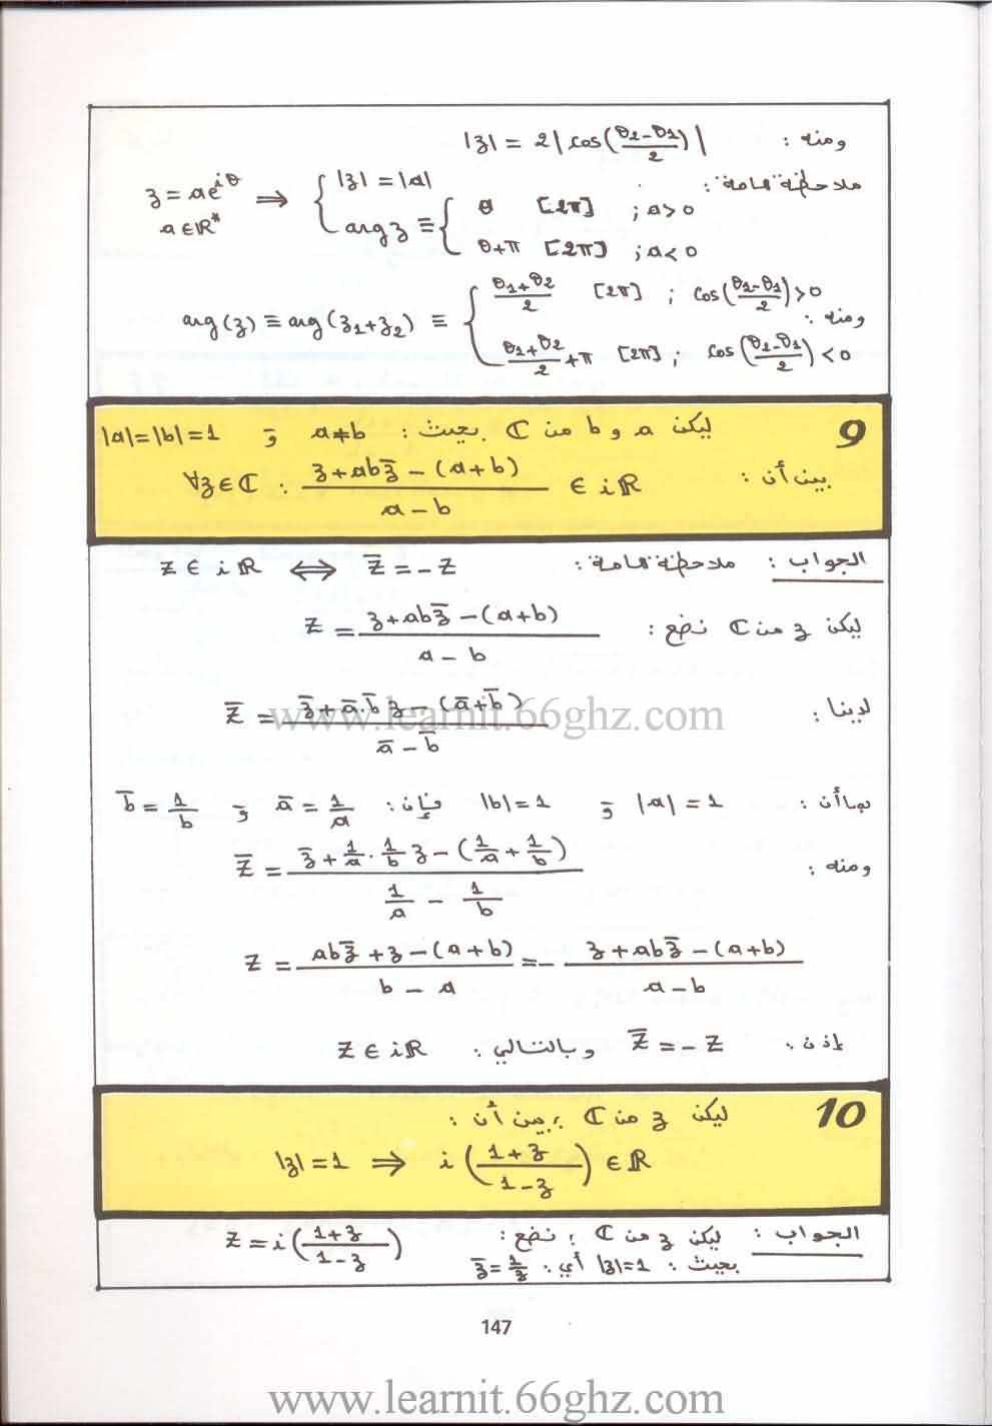 ومنه : |z| = 2|cos((θ2-θ1)/2)|
ملاحظة هامة : z = ae^{iθ} ⟹ { |z| = |a|
a ∈ ℝ* arg z ≡ { θ [2π] ; a>0
θ+π [2π] ; a<0
ومنه : arg(z) ≡ arg(z1+z2) ≡ { (θ1+θ2)/2 [2π] ; cos((θ2-θ1)/2) > 0
(θ1+θ2)/2 + π [2π] ; cos((θ2-θ1)/2) < 0
9 ليكن a و b من ℂ بحيث : a≠b و |a|=|b|=1
بين أن : ∀z∈ℂ : (z+ab z̄ -(a+b))/(a-b) ∈ iℝ
الجواب : ملاحظة هامة : Z ∈ iℝ ⟺ Z̄ = -Z
ليكن z من ℂ نضع : Z = (z+ab z̄ -(a+b))/(a-b)
لدينا : Z̄ = (z̄ + ā.b̄ z - (ā+b̄))/(ā - b̄)
بما أن : |a| = 1 و |b| = 1 فإن : ā = 1/a و b̄ = 1/b
ومنه : Z̄ = (z̄ + 1/a . 1/b z - (1/a + 1/b))/(1/a - 1/b)
Z = (ab z̄ + z - (a+b))/(b - a) = - (z+ab z̄ -(a+b))/(a-b)
إذن : Z̄ = -Z وبالتالي : Z ∈ iℝ
10 ليكن z من ℂ ، بين أن :
|z| = 1 ⟹ i((1+z)/(1-z)) ∈ ℝ
الجواب : ليكن z من ℂ ، نضع : Z = i((1+z)/(1-z))
بحيث : |z|=1 أي : z̄ = 1/z
147
www.learnit.66ghz.com
www.learnit.66ghz.com